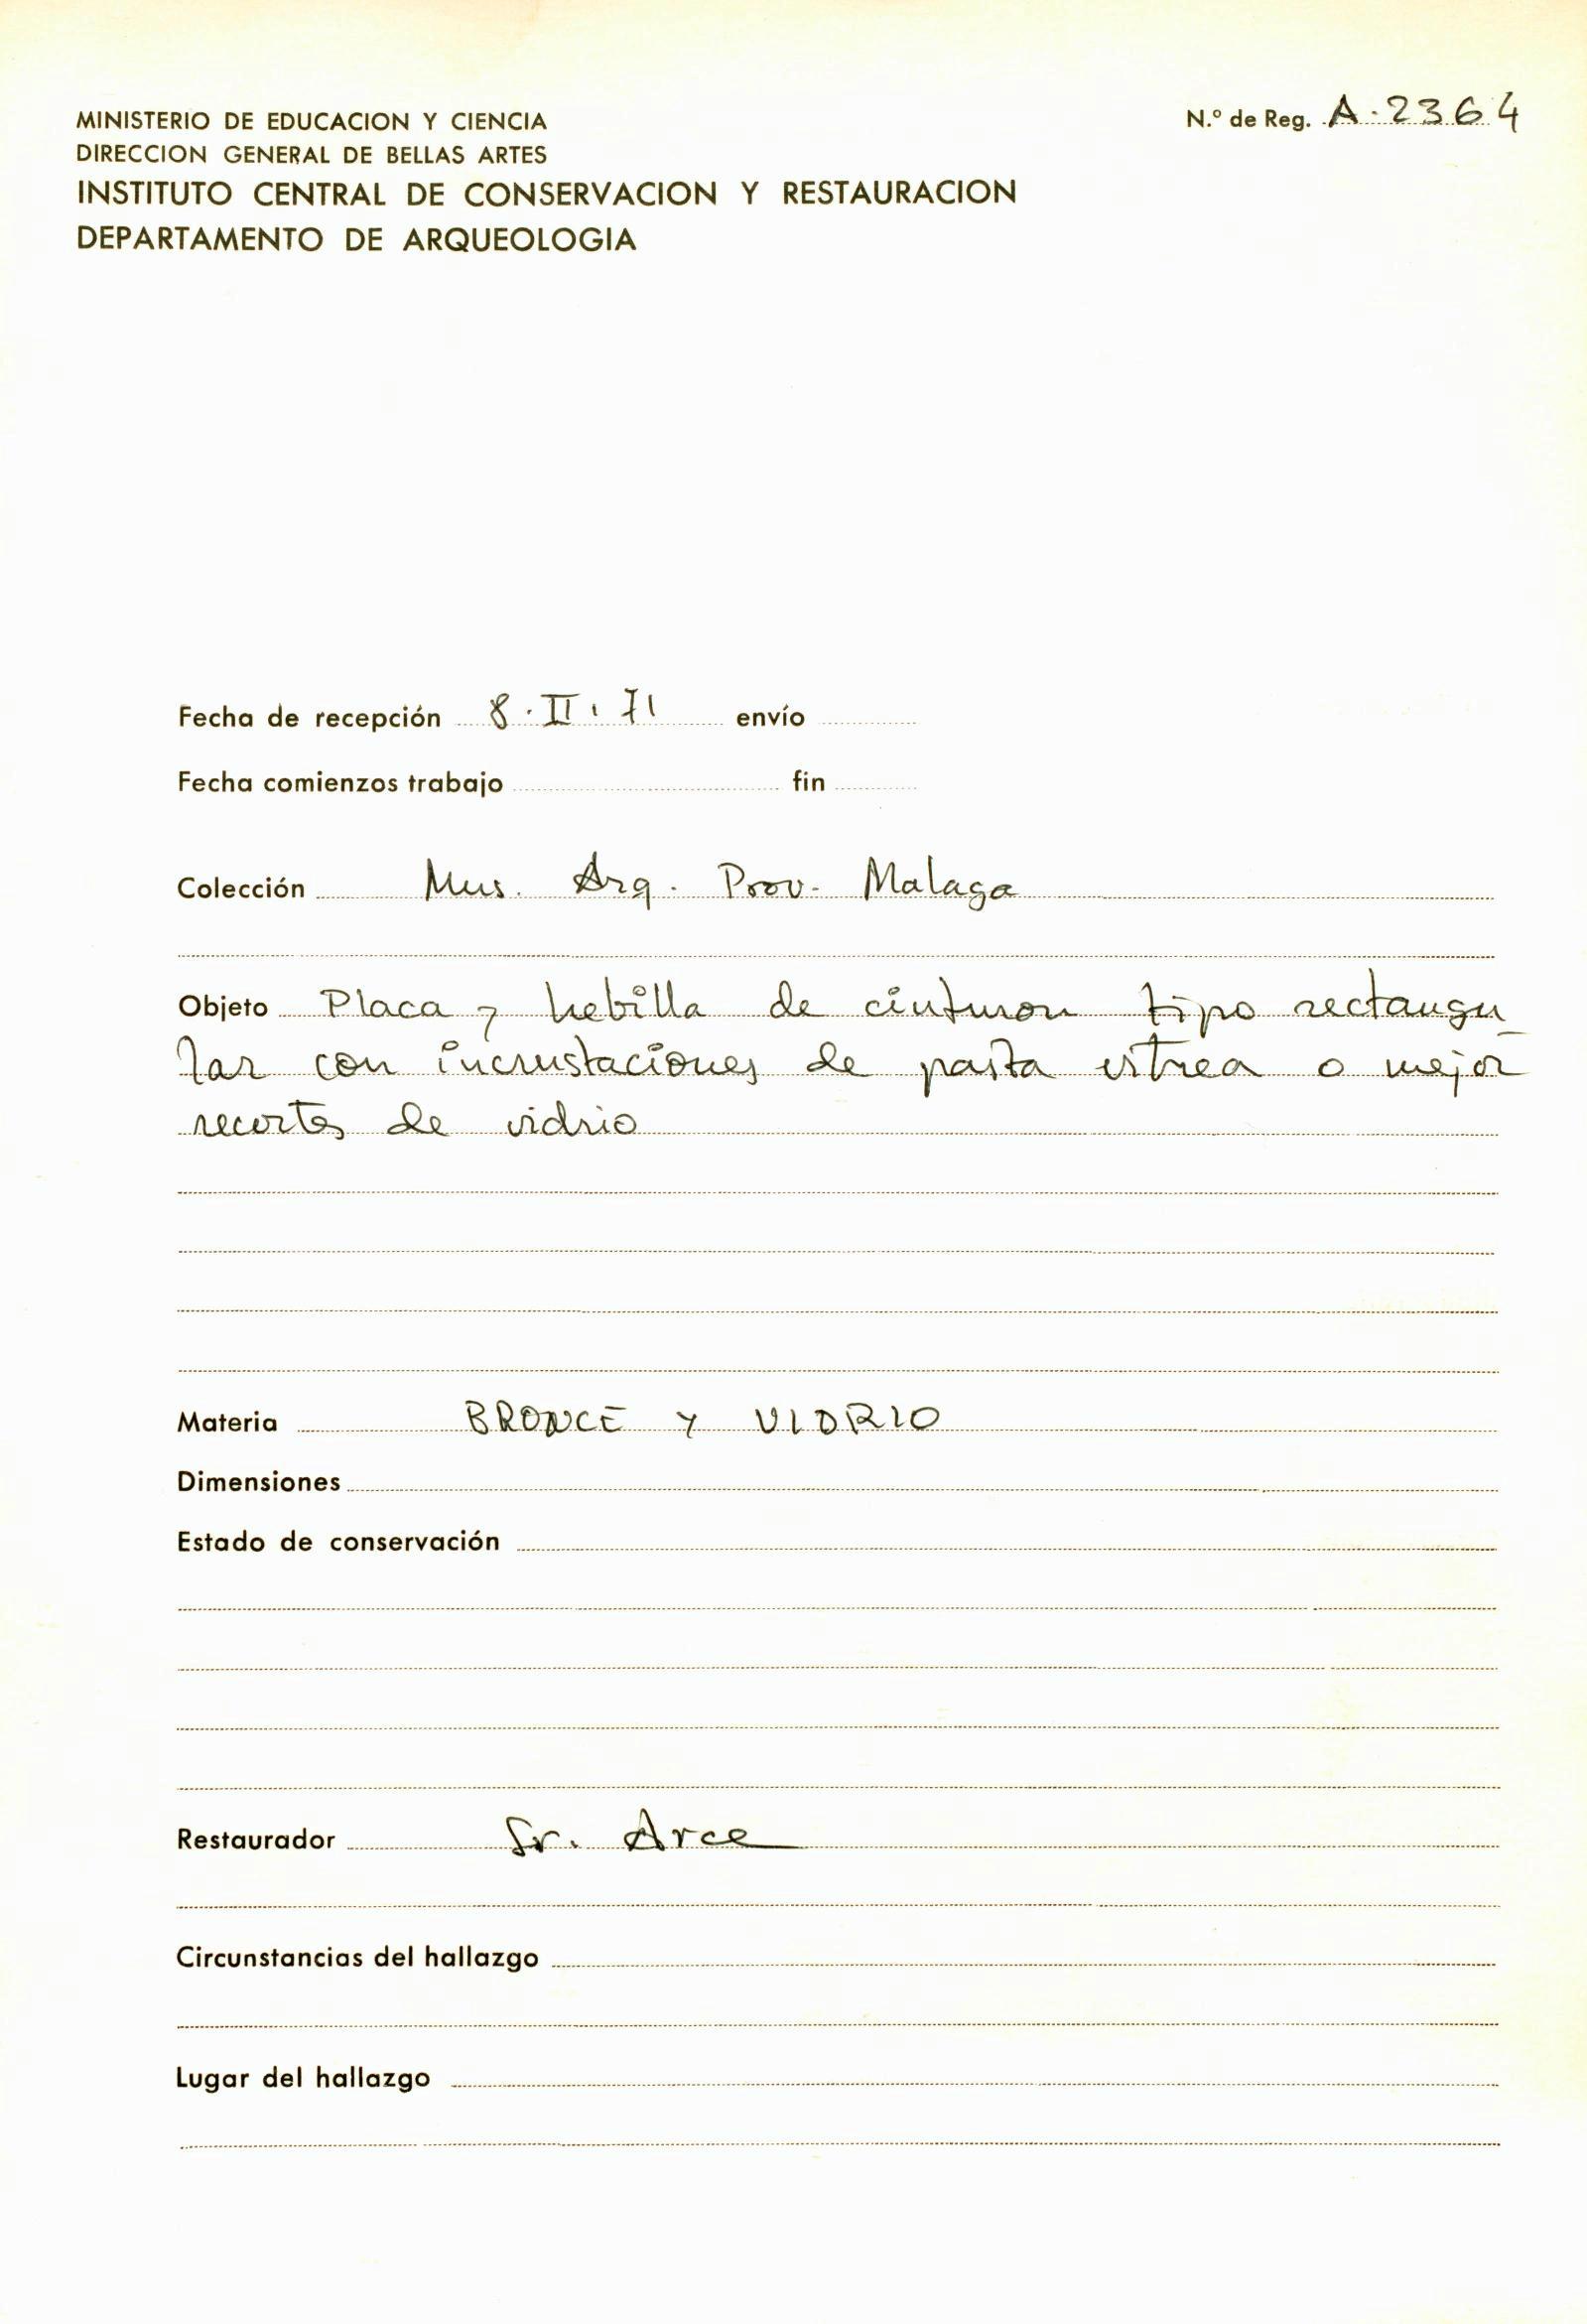 MINISTERIO DE EDUCACION Y CIENCIA
N.º de Reg. A.2364
DIRECCION GENERAL DE BELLAS ARTES
INSTITUTO CENTRAL DE CONSERVACION Y RESTAURACION
DEPARTAMENTO DE ARQUEOLOGIA
Fecha de recepción 8.II.71 envío
Fecha comienzos trabajo fin
Colección Mus. Arq. Prov. Malaga
Objeto Placa y hebilla de cinturon tipo rectangu
lar con incrustaciones de pasta vitrea o mejor
recortes de vidrio
Materia BRONCE Y VIDRIO
Dimensiones
Estado de conservación
Restaurador Sr. Arce
Circunstancias del hallazgo
Lugar del hallazgo